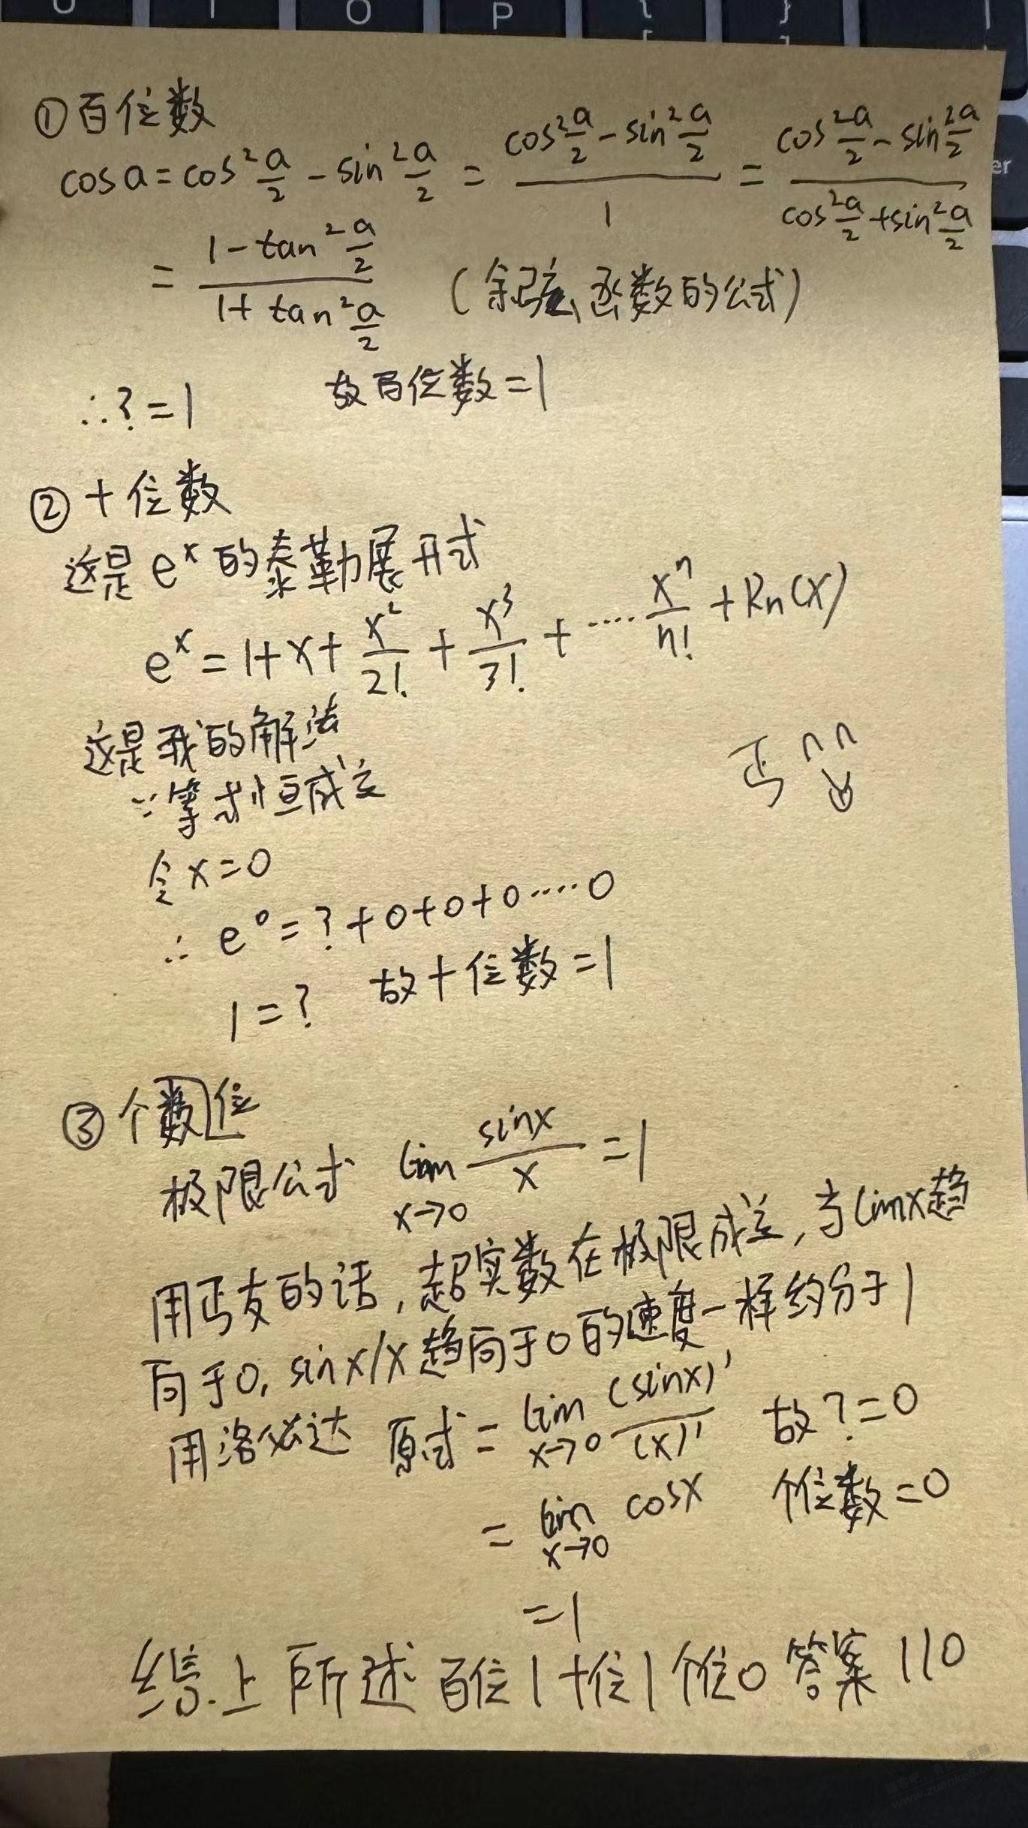 U I O P { [ } ] |
①百位数
cosa=cos²a/2-sin²a/2=(cos²a/2-sin²a/2)/1=(cos²a/2-sin²a/2)/(cos²a/2+sin²a/2)
=(1-tan²a/2)/(1+tan²a/2) (余弦函数的公式)
∴?=1 故百位数=1
②十位数
这是e^x的泰勒展开式
e^x=1+x+x²/2!+x³/3!+....x^n/n!+Rn(x)
这是我的解法
∵等式恒成立
令x=0
∴e^0=?+0+0+0....0
1=? 故十位数=1
③个数位
极限公式 lim x→0 sinx/x=1
用丐友的话,超实数在极限成立,当limx趋
向于0,sinx/x趋向于0的速度一样约分于1
用洛必达 原式=lim x→0 (sinx)'/(x)' 故?=0
=lim x→0 cosx 个位数=0
=1
综上所述 百位1十位1个位0 答案110
丐